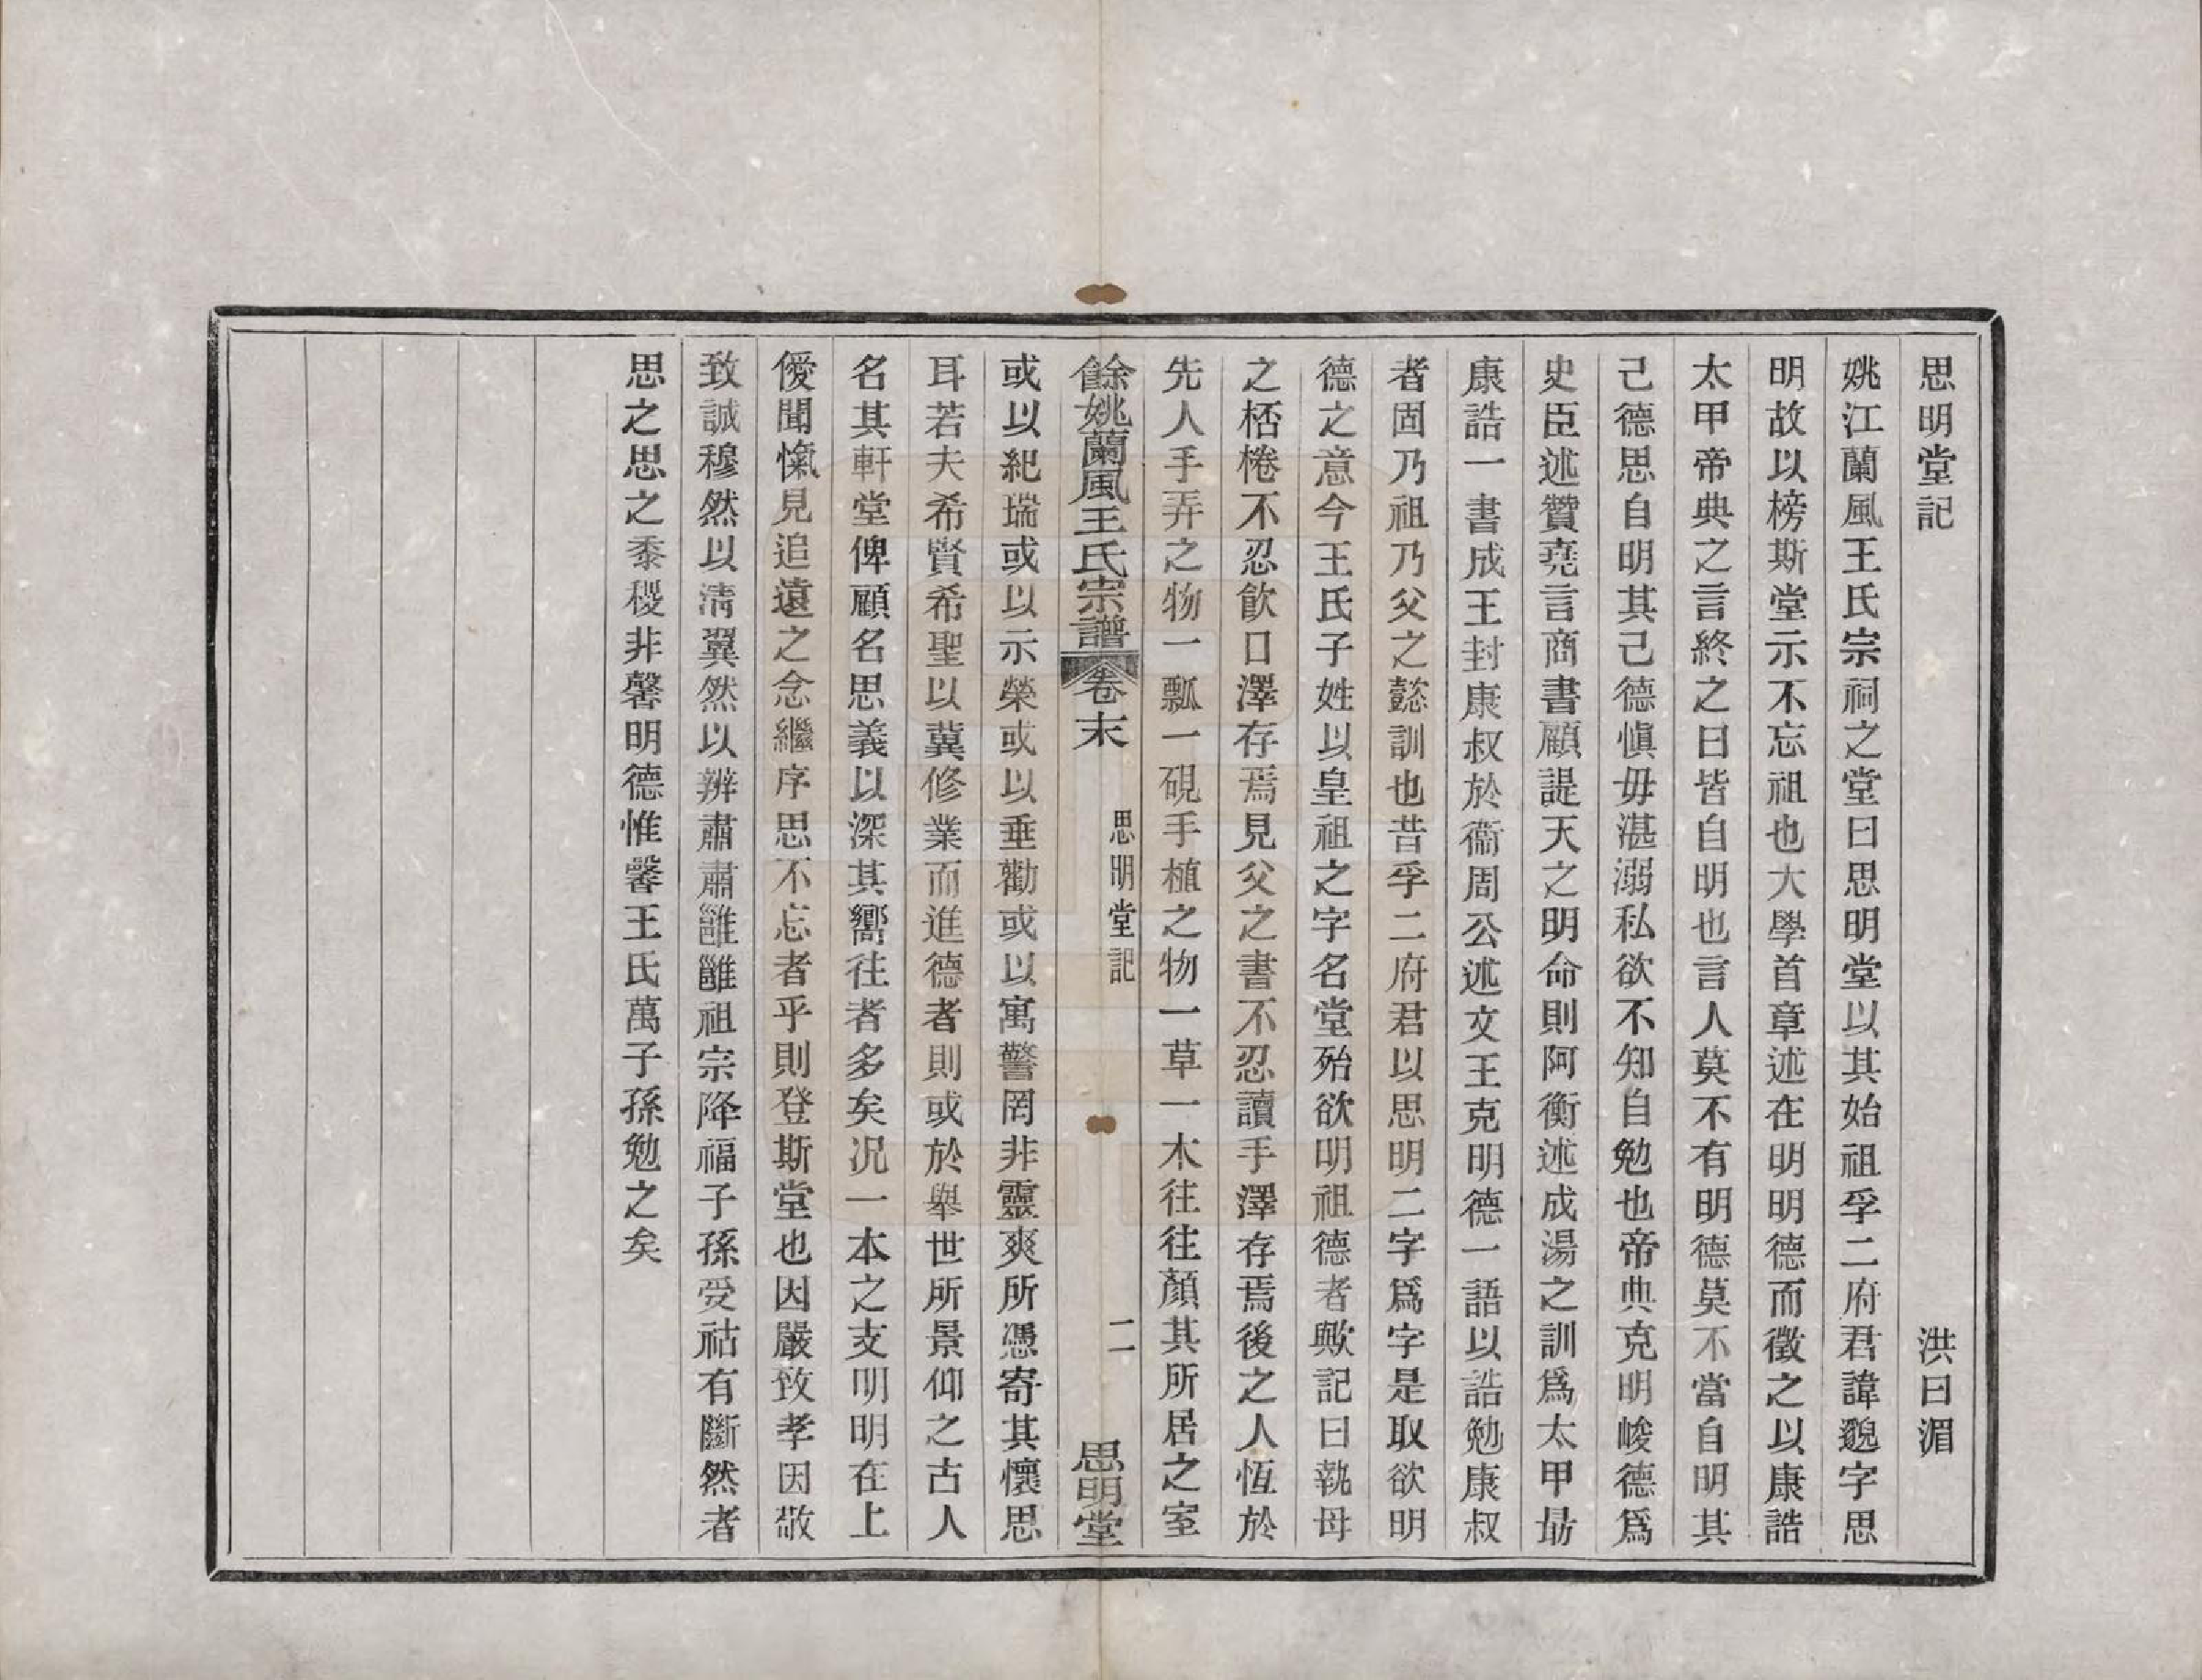 思明堂記　洪曰湄
姚江蘭風王氏宗祠之堂曰思明堂以其始祖孚二府君諱邈字思
明故以榜斯堂示不忘祖也大學首章述在明明德而徵之以康誥
太甲帝典之言終之曰皆自明也言人莫不有明德莫不當自明其
己德思自明其己德愼毋湛溺私欲不知自勉也帝典克明峻德爲
史臣述贊堯言商書顧諟天之明命則阿衡述成湯之訓爲太甲最
康誥一書成王封康叔於衞周公述文王克明德一語以誥勉康叔
者固乃祖乃父之懿訓也昔孚二府君以思明二字爲字是取欲明
德之意今王氏子姓以皇祖之字名堂殆欲明祖德者歟記曰執母
之桮棬不忍飮口澤存焉見父之書不忍讀手澤存焉後之人恆於
先人手弄之物一瓢一硯手植之物一草一木往往顏其所居之室
餘姚蘭風王氏宗譜　卷末　思明堂記　二　思明堂
或以紀瑞或以示榮或以垂勸或以寓警罔非靈爽所憑寄其懷思
耳若夫希賢希聖以冀修業而進德者則或於舉世所景仰之古人
名其軒堂俾顧名思義以深其嚮往者多矣况一本之支明明在上
僾聞愾見追遠之念繼序思不忘者乎則登斯堂也因嚴致孝因敬
致誠穆然以淸翼然以辨肅肅雝雝祖宗降福子孫受祜有斷然者
思之思之黍稷非馨明德惟馨王氏萬子孫勉之矣